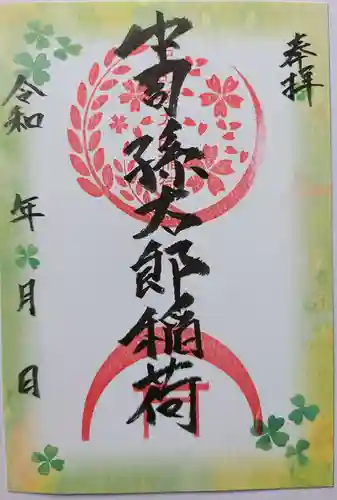 奉拝
半司孫太郎稲荷
令和 年 月 日